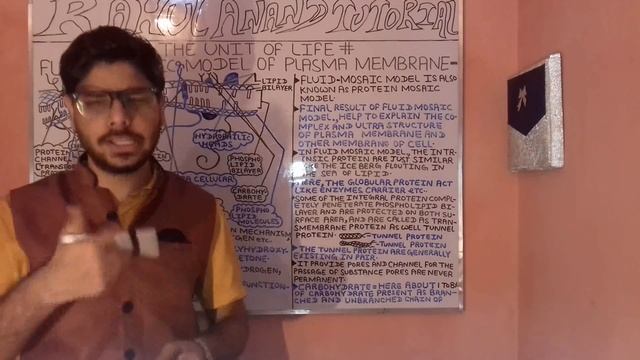 RAHUL ANAND TUTORIAL
THE UNIT OF LIFE #
MODEL OF PLASMA MEMBRANE-
LIPID
BILAYER
HYDROPHILIC
HEADS
PHOSPHO
LIPID
BILAYER
PROTEIN
CHANNEL
CARBOHY-
DRATE
PHOSPHO
LIPID
MOLECULES
CELLULAR
N MECHANISM
GEN ETC.
LYHYDROXY-
ETONE-
DROGEN,
FUNCTION-
FLUID-MOSAIC MODEL IS ALSO
KNOWN AS PROTEIN MOSAIC
MODEL-
FINAL RESULT OF FLUID MOSAIC
MODEL., HELP TO EXPLAIN THE CO-
MPLEX AND ULTRA STRUCTURE
OF PLASMA MEMBRANE AND
OTHER MEMBRANE OF CELL-
IN FLUID MOSAIC MODEL, THE INT-
RINSIC PROTEIN ARE JUST SIMILAR
THE ICE BERG FLOUTING IN
THE SEA OF LIPID.
HERE, THE GLOBULAR PROTEIN ACT
LIKE ENZYMES CARRIER ETC-
SOME OF THE INTEGRAL PROTEIN COMPL-
ETELY PENETRATE PHOSPHOLIPID BI-
LAYER AND ARE PROTECTED ON BOTH SU-
RFACE AREA, AND ARE CALLED AS TRAN-
SMEMBRANE PROTEIN AS WELL TUNNEL
PROTEIN
-TUNNEL PROTEIN
-TUNNEL PROTEIN
THE TUNNEL PROTEIN ARE GENERALLY
EXISTING IN PAIR-
IT PROVIDE PORES AND CHANNEL FOR THE
PASSAGE OF SUBSTANCE PORES ARE NEVER
PERMANENT-
CARBOHYDRATE = HERE ABOUT 1 TO 8%
OF CARBOHYDRATE PRESENT AS BRAN-
CHED AND UNBRANCHED CHAIN OF